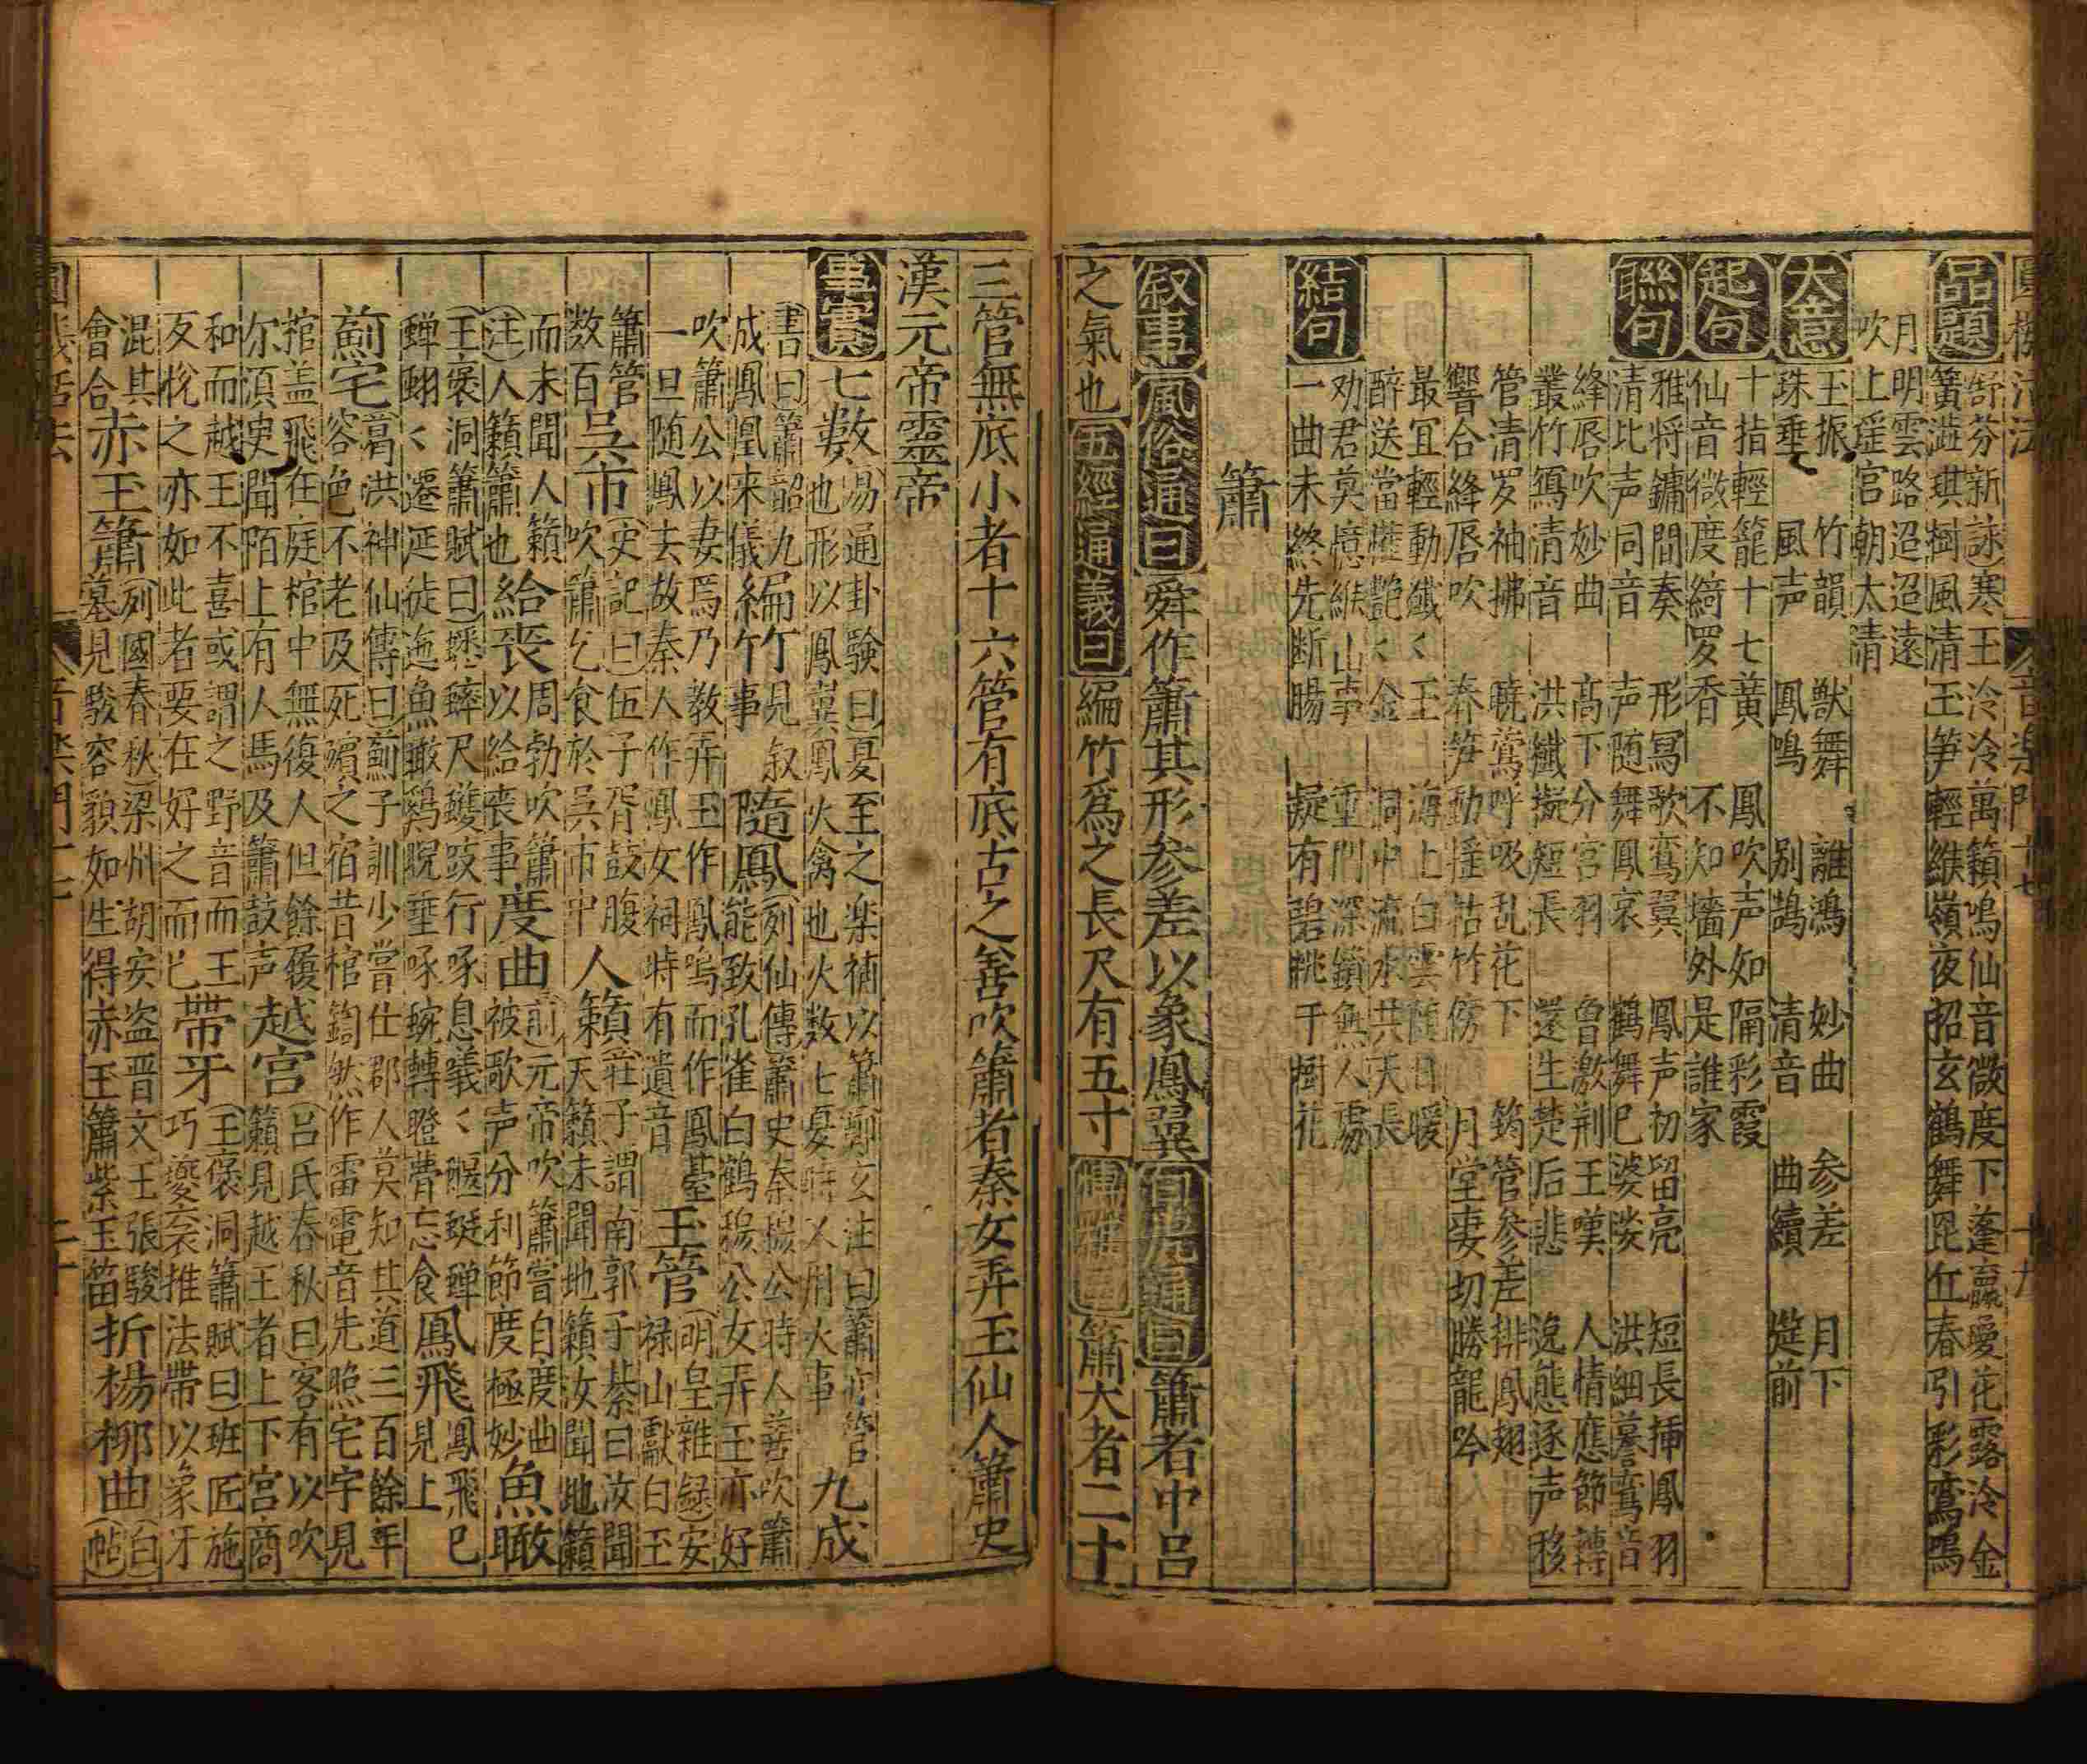 品題
舒芬新詠寒玉泠泠萬籟鳴仙音微度下蓬瀛曖花露泠金
簧澁琪樹風清玉笋輕緱嶺夜招玄鶴舞昆丘春引彩鸞鳴
月明雲路迢迢遠
吹上瑤宮朝太清
大意
玉振 竹韻 獸舞 離鴻 妙曲 参差 月下
珠垂 風声 鳳鳴 别鵠 清音 曲續 筵前
起句
十指輕籠十七簧 鳳吹声如隔彩霞
仙音微度綺罗香 不知墻外是誰家
聯句
雅将鏞間奏 形冩歌鸞翼 鳳声初留亮 短長挿鳳羽
清比声同音 声随舞鳳哀 鶴舞已婆娑 洪細募鸞音
絳唇吹妙曲 高下分宮羽 魯激荆王嘆 人情應節轉
叢竹鴈清音 洪纎擬短長 還生楚后悲 逸態逐声移
管清罗袖拂 曉鶯呼吸乱花下 筠管參差排鳳翅
響合絳唇吹 春笋動揺牯竹傍 月堂妻切勝龍吟
最宜輕動纎〻玉 海上白雲隨日暖
醉送當筵艷〻金 洞中流水共天長
結句
劝君莫憶緱山事 重門深鎖無人處
一曲未終先断腸 凝有碧桃千樹花
簫
叙事 風俗通曰 舜作簫其形参差以象鳳翼 白虎通曰 簫者中呂
之氣也 五經通義曰 編竹爲之長尺有五寸 博雅曰 簫大者二十
三管無底小者十六管有底古之善吹簫者秦女弄玉仙人簫史
漢元帝靈帝
事實
七數 易通卦驗曰夏至之楽補以簫鄭玄注曰簫亦管
也形以鳳翼鳳火禽也火数七夏時又用火事 九成
書曰簫韶九
成鳳凰来儀 編竹 見叙
事 隨鳳 列仙傳蕭史秦穆公時人善吹簫
能致孔雀白鶴穆公女弄玉亦好
吹簫公以妻焉乃教弄玉作鳳鳴而作鳳䑓
一旦随鳳去故秦人作鳳女祠時有遺音 玉管 明皇雜録安
禄山獻白玉
簫管
数百 吳市 史記曰伍子胥鼓腹
吹簫乞食於吳市中 人籟 莊子謂南郭子綦曰汝聞
天籟未聞地籟汝聞地籟
而未聞人籟
注人籟簫也 給喪 周勃吹簫
以給喪事 度曲 前元帝吹簫嘗自度曲
被歌声分利節度極妙 魚瞰
王褒洞簫賦曰蟋蟀尺蠖跂行喙息蟻〻蝘蜓蟬
蟬蜩〻遷延徒迤魚瞰鷄睨垂喙䖤轉瞪瞢忘食 鳳飛 鳳飛已
見上
薊宅 葛洪神仙傳曰薊子訓少嘗仕郡人莫知其道三百餘年
容色不老及死殯之宿昔棺䤧然作雷電音先照宅宇見
棺盖飛在庭棺中無復人但餘䘸
尔湏㬰聞陌上有人馬及簫鼓声 越宮 呂氏春秋曰客有以吹
籟見越王者上下宮商
和而越王不喜或謂之野音而王
反悅之亦如此者要在好之而已 帶牙 王褒洞簫賦曰班匠施
巧夔㐮推法帶以象牙
混其
會合 赤玉簫 列國春秋梁州胡安盗晋文王張駿
墓見駿容貌如生得赤玉簫紫玉笛 折楊柳曲 白
帖